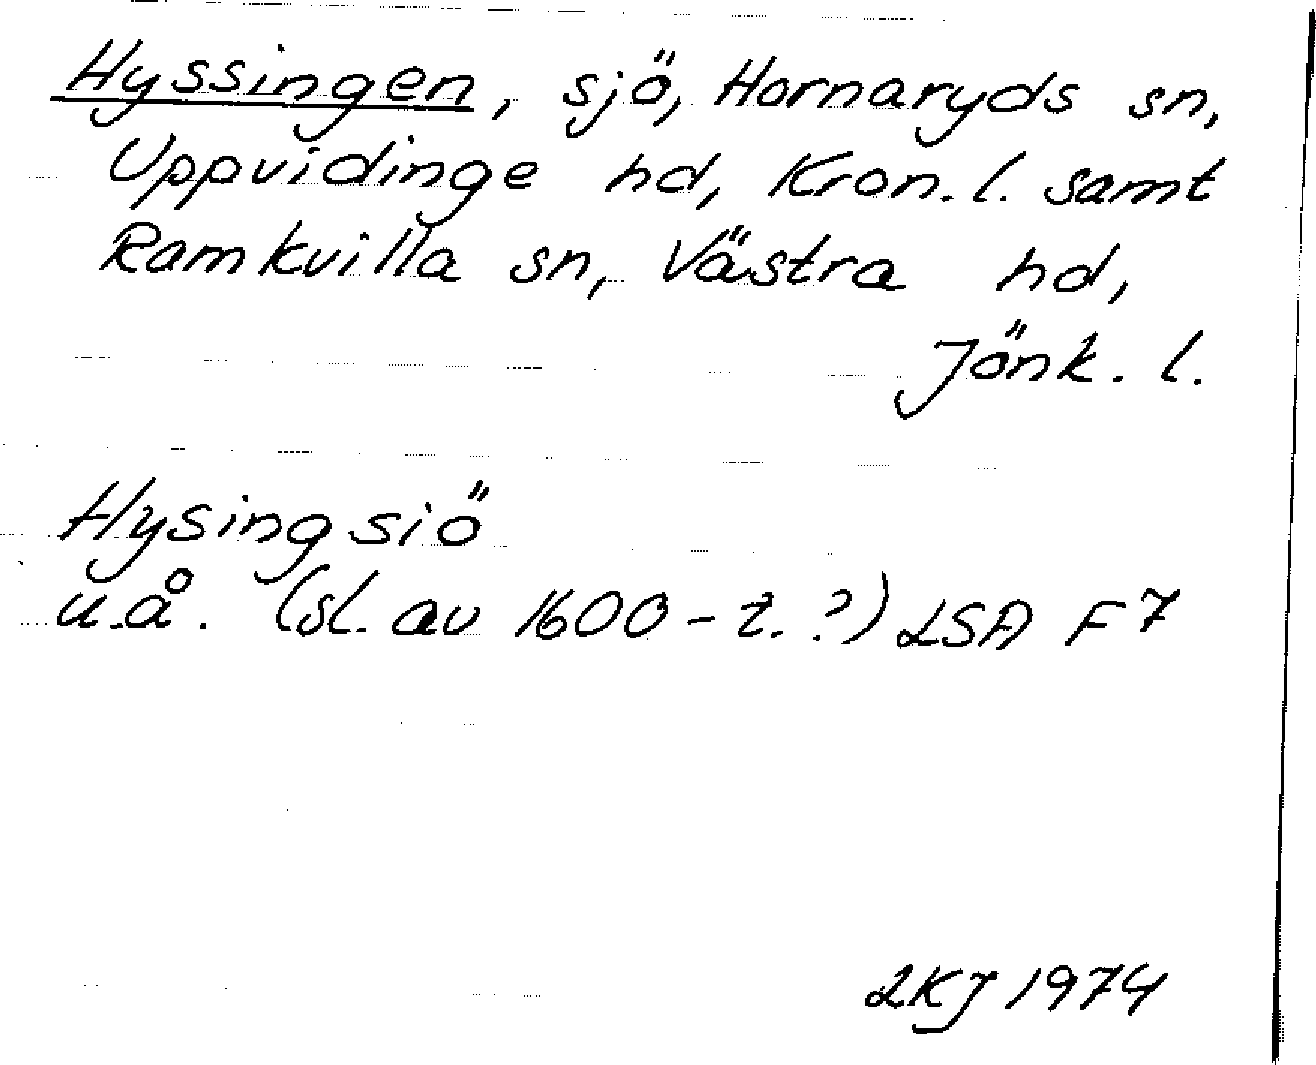 Hyssingen, sjö, Hornaryds sn,
Uppvidinge hd, Kron. l. samt
Ramkvilla sn, Västra hd,
Jönk. l.
Hysingsiö
u.å. (sl. av 1600-t.?) LSA F7
LKJ 1974